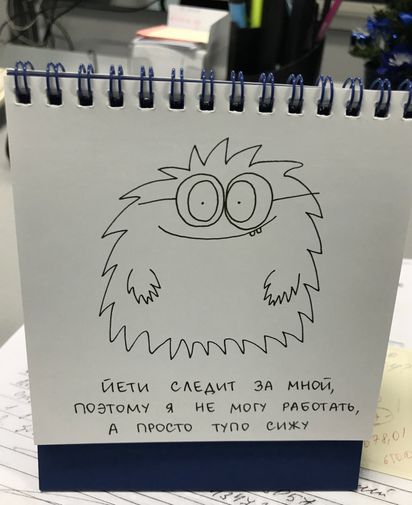 ЙЕТИ СЛЕДИТ ЗА МНОЙ,
ПОЭТОМУ Я НЕ МОГУ РАБОТАТЬ,
А ПРОСТО ТУПО СИЖУ